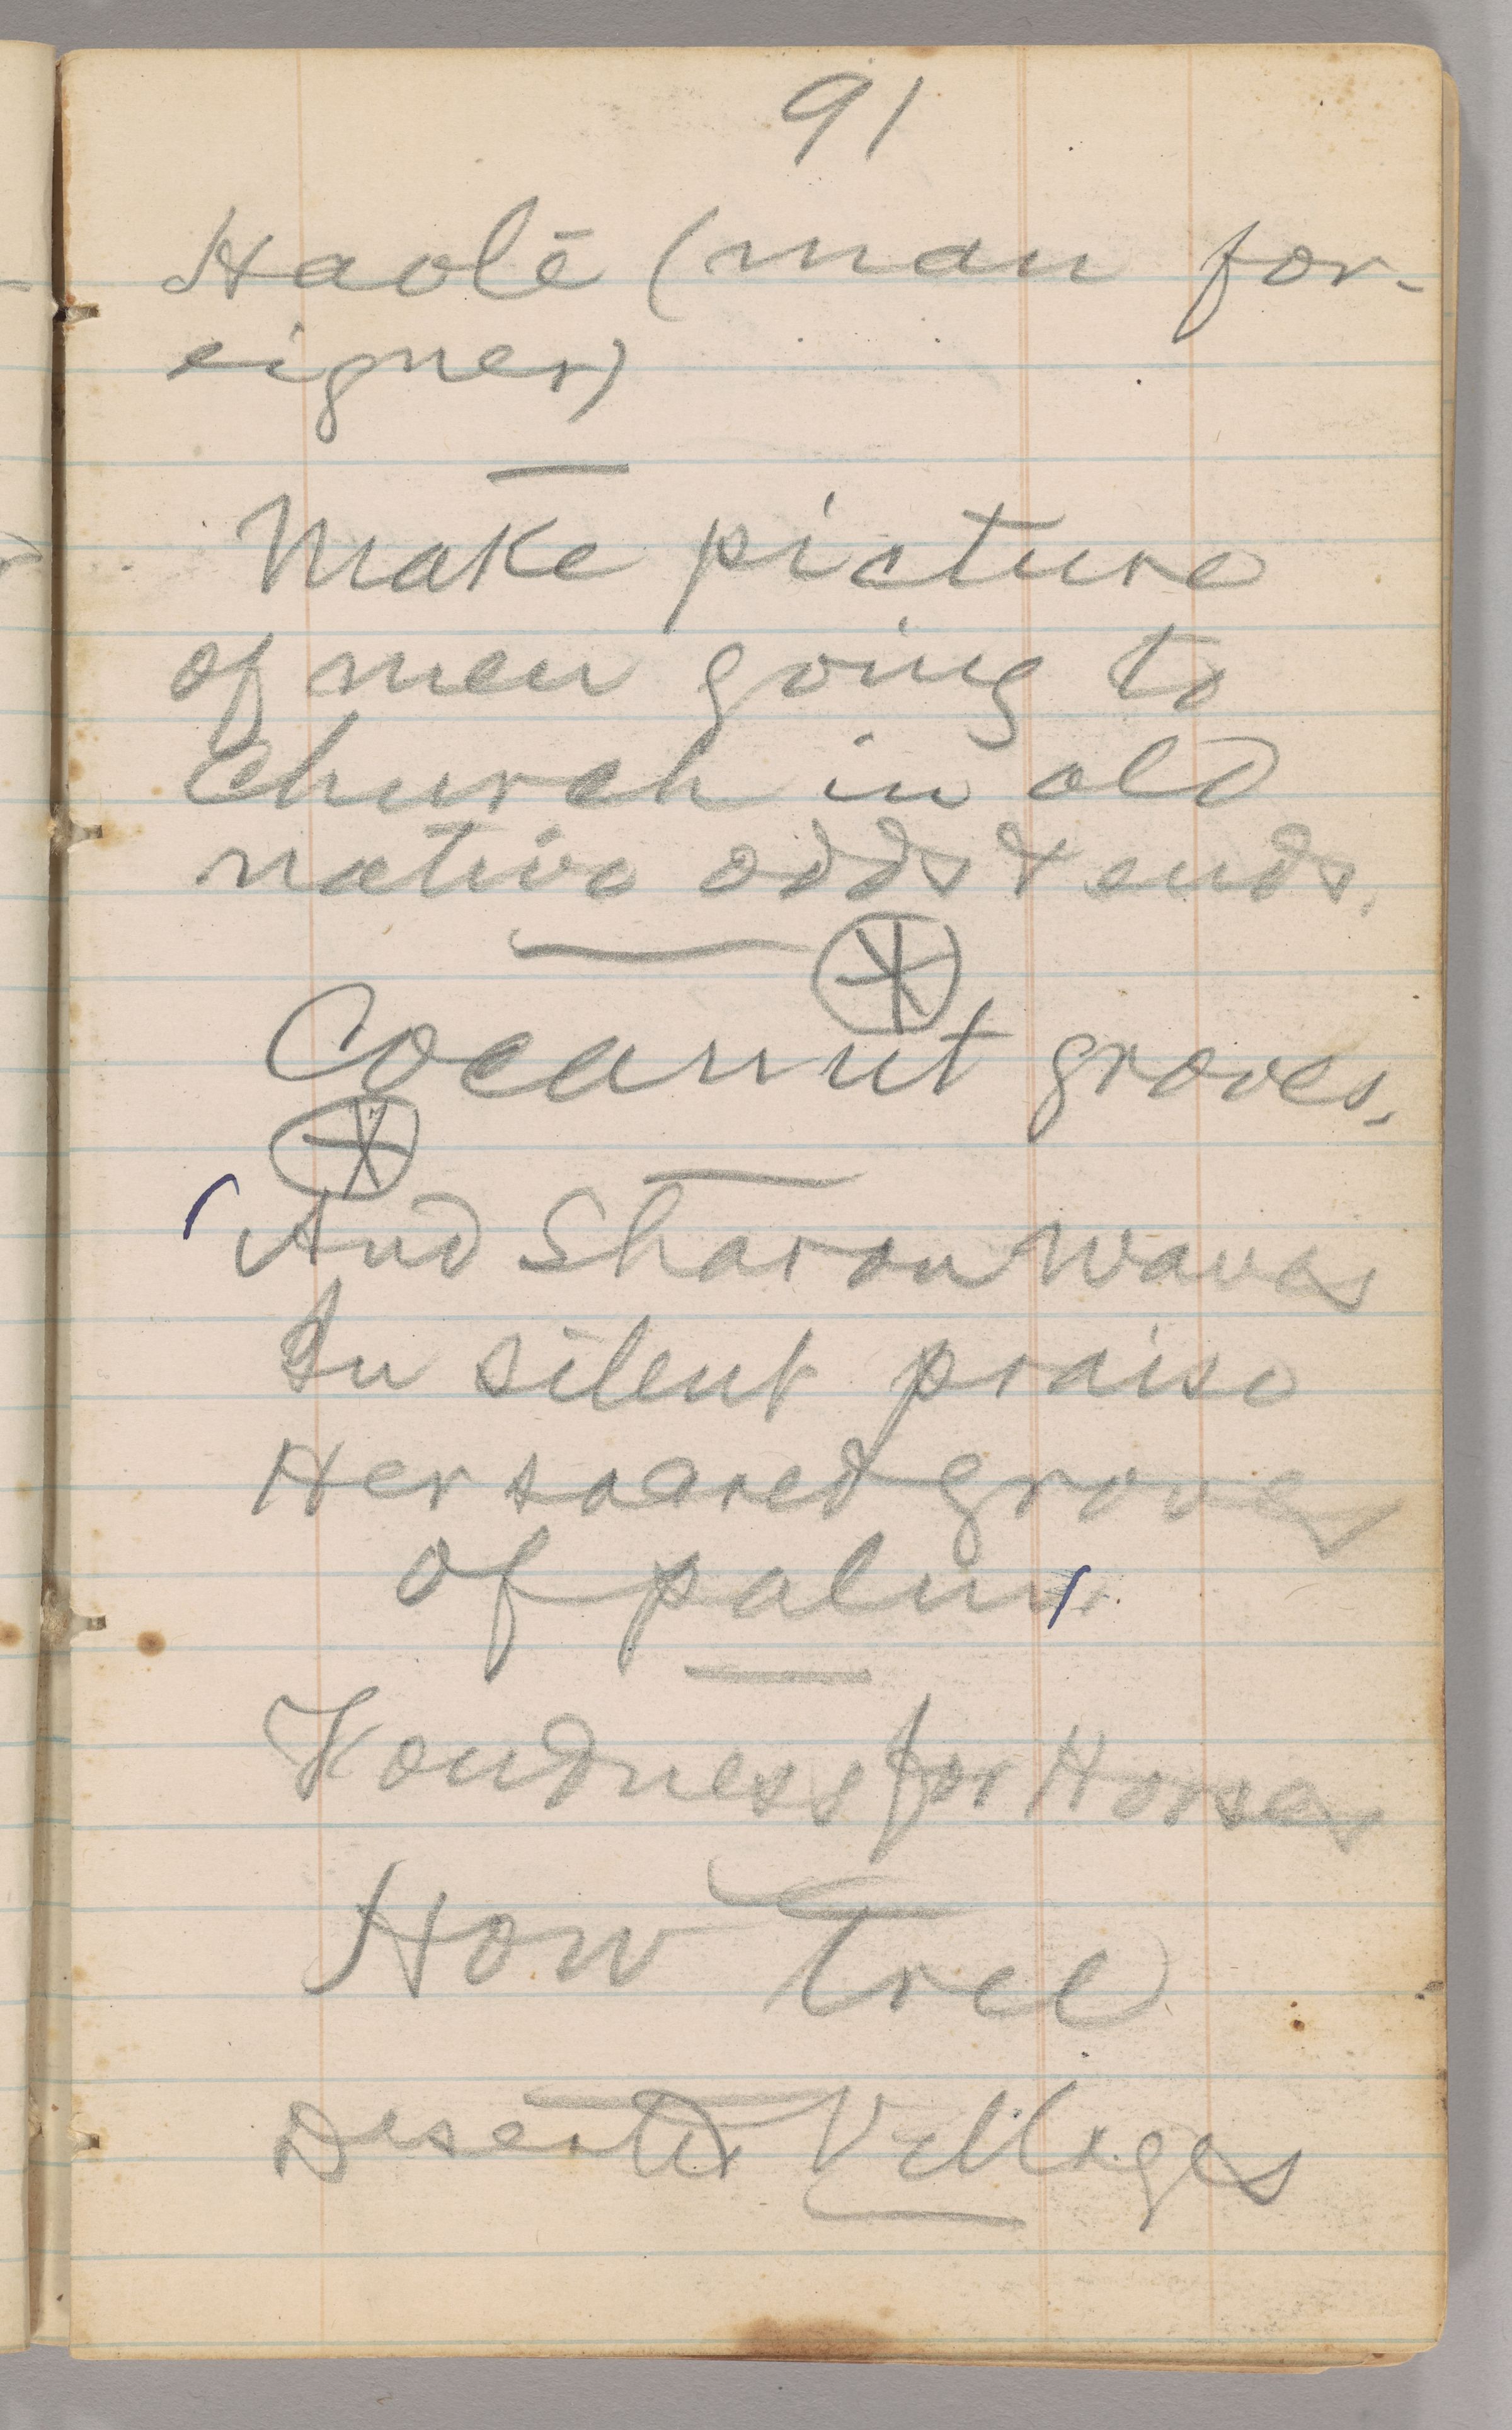 91
Haolē (man for-
eigner)
Make picture
of men going to
church in old
native odds & ends.
Cocoanut groves.
And Sharon waves
In silent praise
Her sacred groves
of palm.
Fondness for Horses
How Tree
Deserted Villages